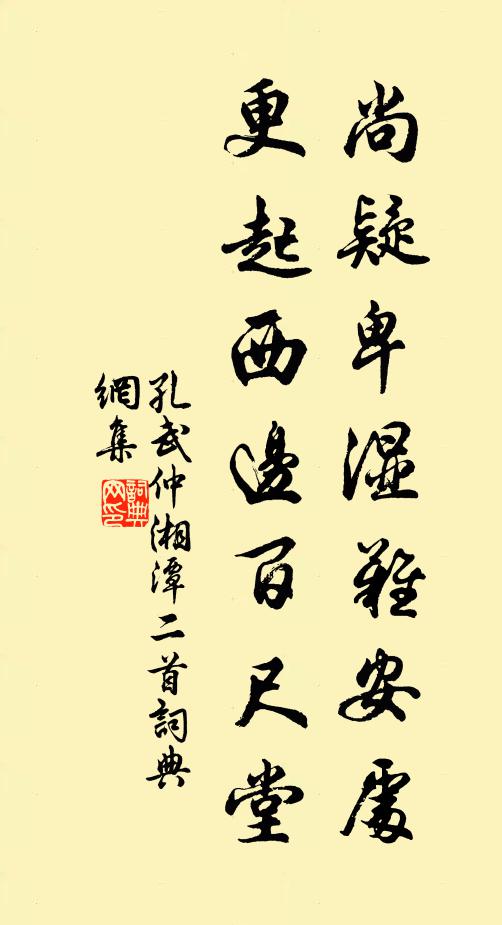 尚疑卑濕難安處
更起西邊百尺堂
孔武仲湘潭二首詞典
網集
詞典網印